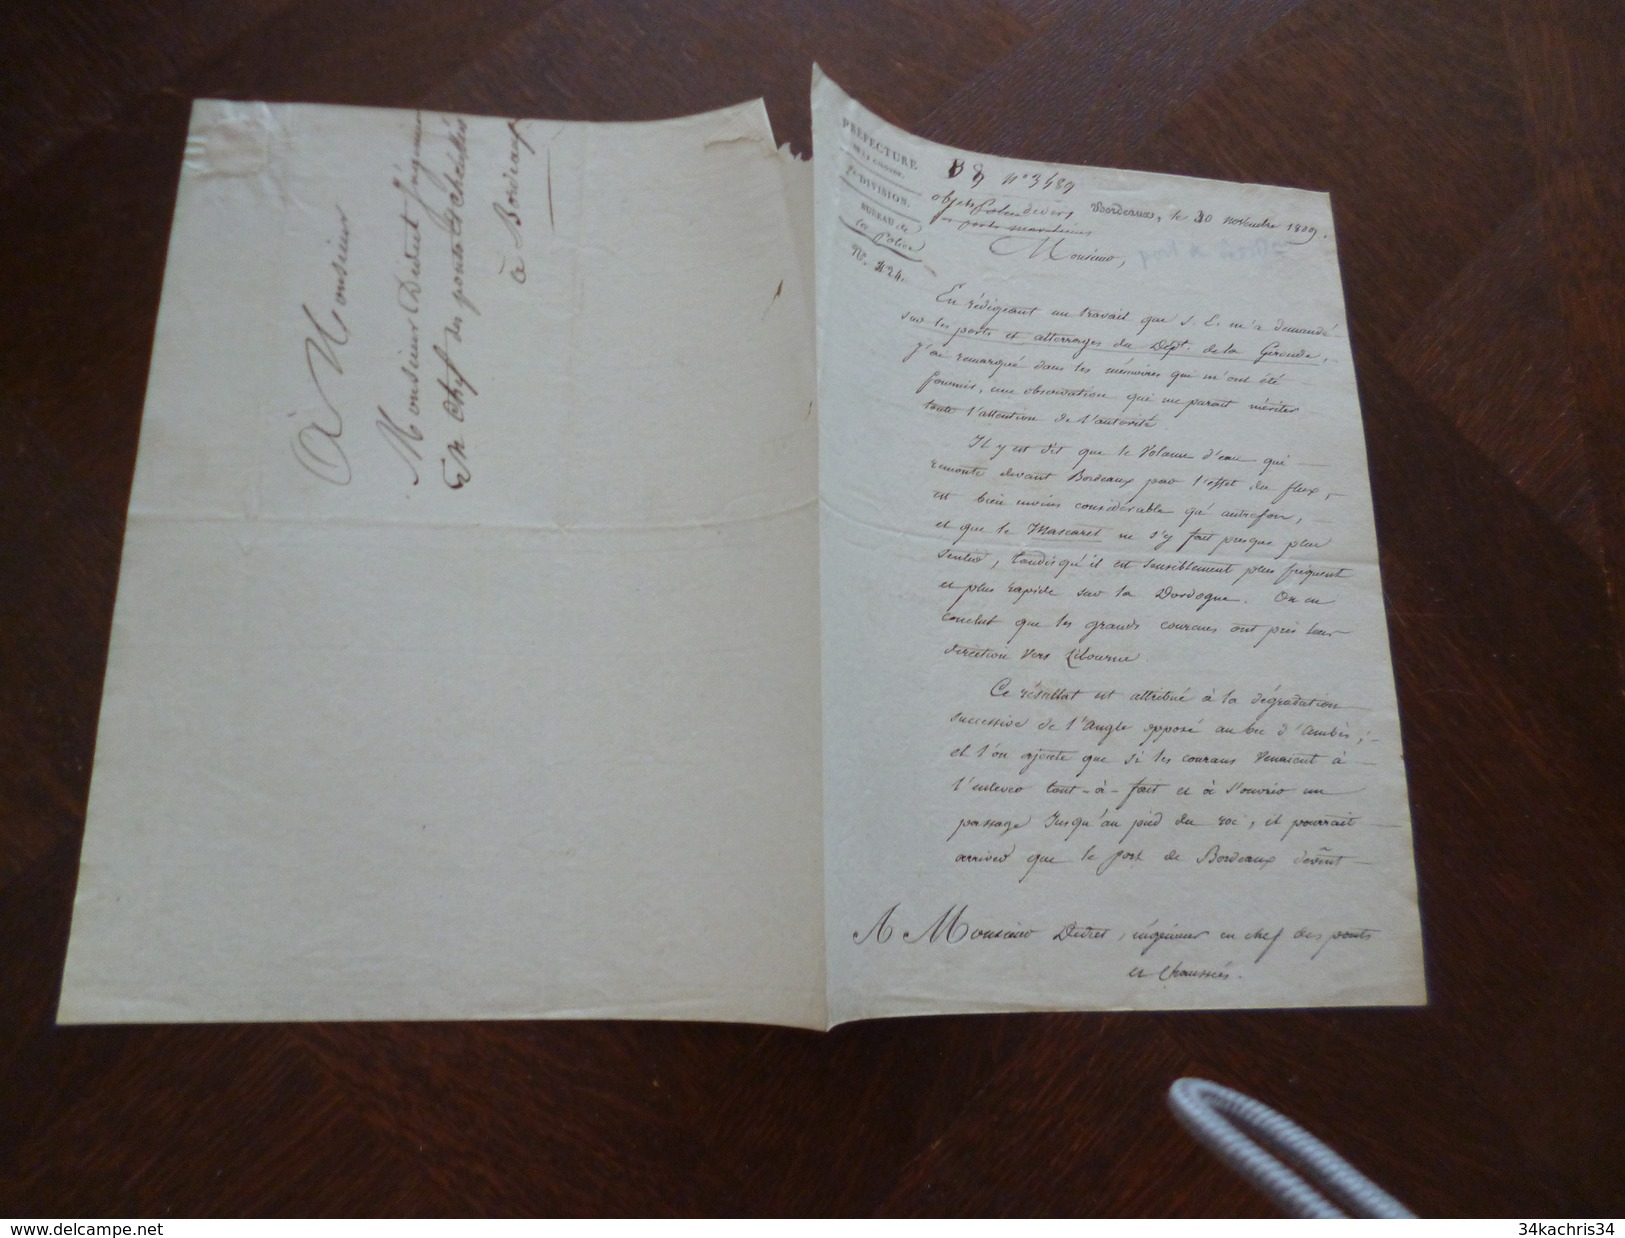 À Monsieur
Monsieur Didiet Ingénieur
En Chef des ponts et chaussées
à Bordeaux
PRÉFECTURE
DE LA GIRONDE.
2e DIVISION.
BUREAU de
la Police
N°. 424.
B 8 n° 3489
objets divers
ports maritimes
Bordeaux, le 30 novembre 1809.
Monsieur,
En rédigeant un travail que S. E. m'a demandé
sur les ports et atterrages du Dépt. de la Gironde,
j'ai remarqué dans les mémoires qui m'ont été
fournis, une observation qui me parait mériter
toute l'attention de l'autorité.
Il y est dit que le Volume d'eau qui
remonte devant Bordeaux par l'effet du flux,
est bien moins considérable qu'autrefois,
et que le Mascaret ne s'y fait presque plus
sentir, tandis qu'il est sensiblement plus fréquent
et plus rapide sur la Dordogne. On en
conclut que les grands courans ont pris leur
direction vers Libourne.
Ce résultat est attribué à la dégradation
successive de l'Angle opposé au bec d'Ambès;
et l'on ajoute que si les courans Venaient à
l'enlever tout-à-fait et à s'ouvrir un
passage Jusqu'au pied du roc, il pourrait
arriver que le port de Bordeaux devînt
A Monsieur Didiet, ingénieur en chef des ponts
et chaussées.
www.delcampe.net
34kachris34